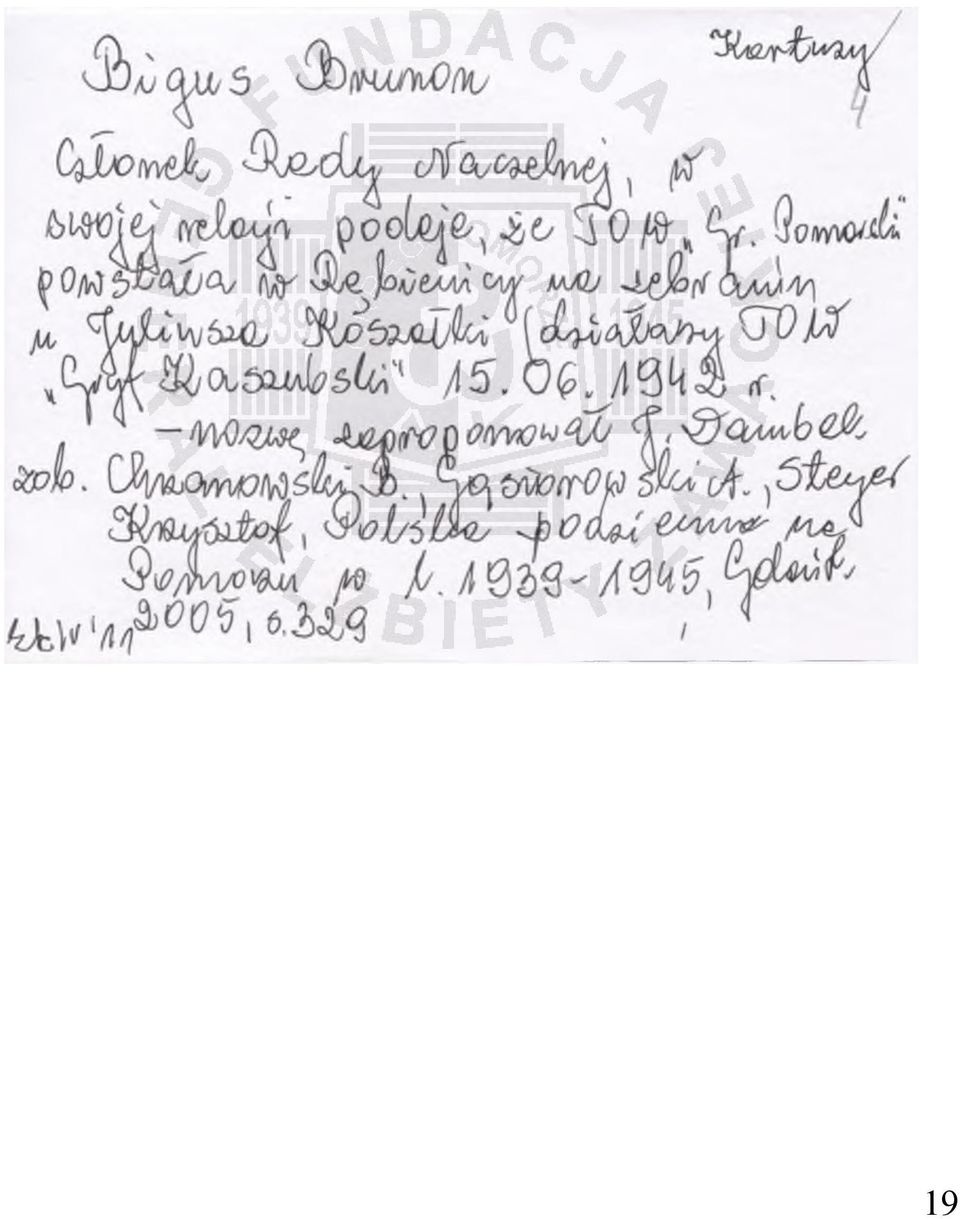 Kartuzy
4
Bigus Brunon
Członek Rady Naczelnej, w
swojej relacji podaje, że TOW „Gr. Pomorski"
powstała w Dębienicy na zebraniu
u Juliusza Koszałki (działaczy TOW
„Gryf Kaszubski" 15.06.1942 r.
– nazwę zaproponował J. Dambek.
zob. Chrzanowski B., Gąsiorowski A., Steyer
Krzysztof, Polska podziemna na
Pomorzu w l. 1939-1945, Gdańsk
2005, s.329
19